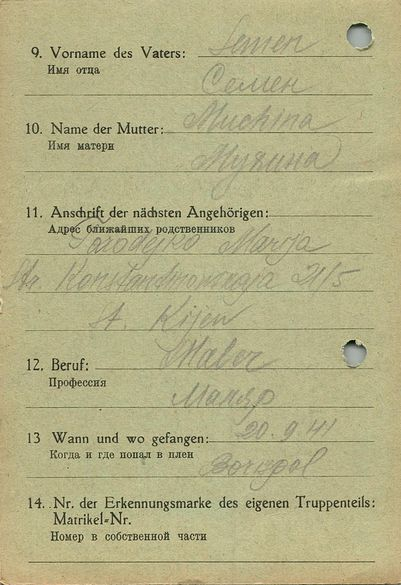 9. Vorname des Vaters: Semen
Имя отца
Семен
10. Name der Mutter: Muchina
Имя матери
Мухина
11. Anschrift der nächsten Angehörigen:
Адрес ближайших родственников
Marija
Str. 21/5
St. Kijew
12. Beruf: Maler
Профессия
Маляр
13 Wann und wo gefangen: 20.9.41
Когда и где попал в плен
14. Nr. der Erkennungsmarke des eigenen Truppenteils:
Matrikel-Nr.
Номер в собственной части